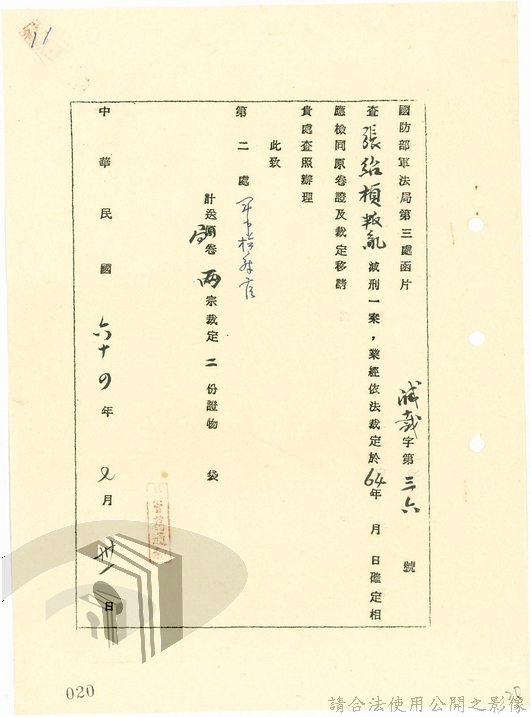 國防部軍法局第三處函片
減裁字第三六號
查張紹楨叛亂減刑一案，業經依法裁定於64年 月 日確定相
應檢同原卷證及裁定移請
貴處查照辦理
此致
第二處
計送局卷兩宗裁定二份證物 袋
中華民國六十四年 月卅一日
020
請合法使用公開之影像